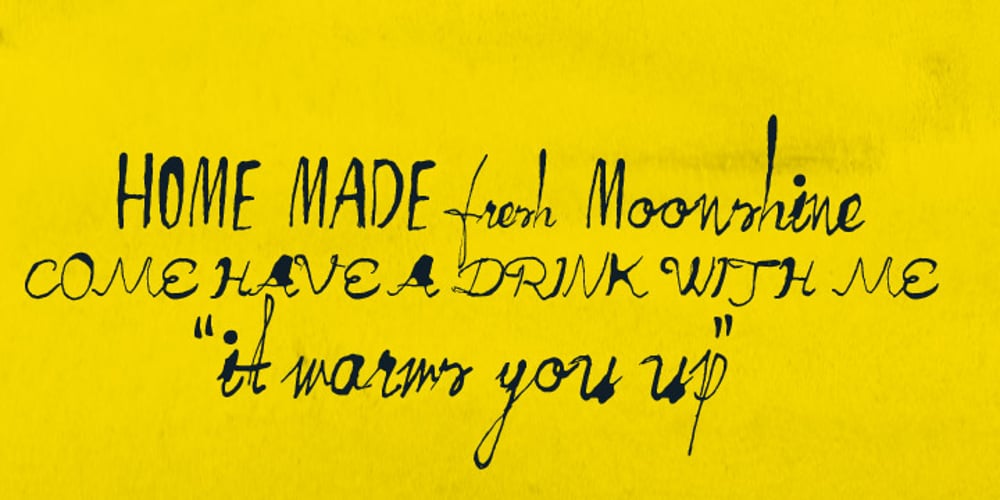 HOME MADE fresh Moonshine
COME HAVE A DRINK WITH ME
“it warms you up”